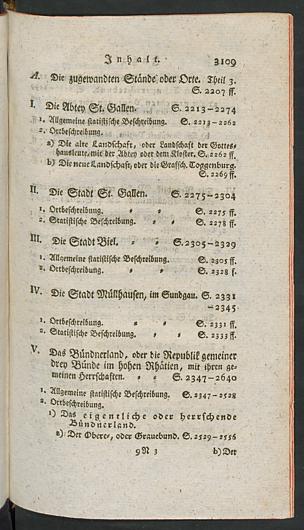 Inhalt. 3109
A. Die zugewandten Stände oder Orte. Theil 3.
S. 2207 ff.
I. Die Abtey St. Gallen. S. 2213-2274
1. Allgemeine statistische Beschreibung. S. 2213-2262
2. Ortbeschreibung.
a) Die alte Landschaft, oder Landschaft der Gottes-
hausleute, mit der Abtey oder dem Kloster. S. 2262 ff.
b) Die neue Landschaft, oder die Grafsch. Toggenburg.
S. 2269 ff.
II. Die Stadt St. Gallen. S. 2275-2304
1. Ortbeschreibung. " " S. 2275 ff.
2. Statistische Beschreibung. " " S. 2278 ff.
III. Die Stadt Biel. " " S. 2305-2329
1. Allgemeine statistische Beschreibung. S. 2305 ff.
2. Ortbeschreibung. " " S. 2328 f.
IV. Die Stadt Müllhausen, im Sundgau. S. 2331
-2345
1. Ortbeschreibung. " " S. 2331 ff.
2. Statistische Beschreibung. " " S. 2333 ff.
V. Das Bündnerland, oder die Republik gemeiner
drey Bünde im hohen Rhätien, mit ihren ge-
meinen Herrschaften. " S. 2347-2640
1. Allgemeine statistische Beschreibung. S. 2347-2528
2. Ortbeschreibung.
1) Das eigentliche oder herrschende
Bündnerland.
a) Der Obere-, oder Grauebund. S. 2529-2556
9 N 3 b) Der